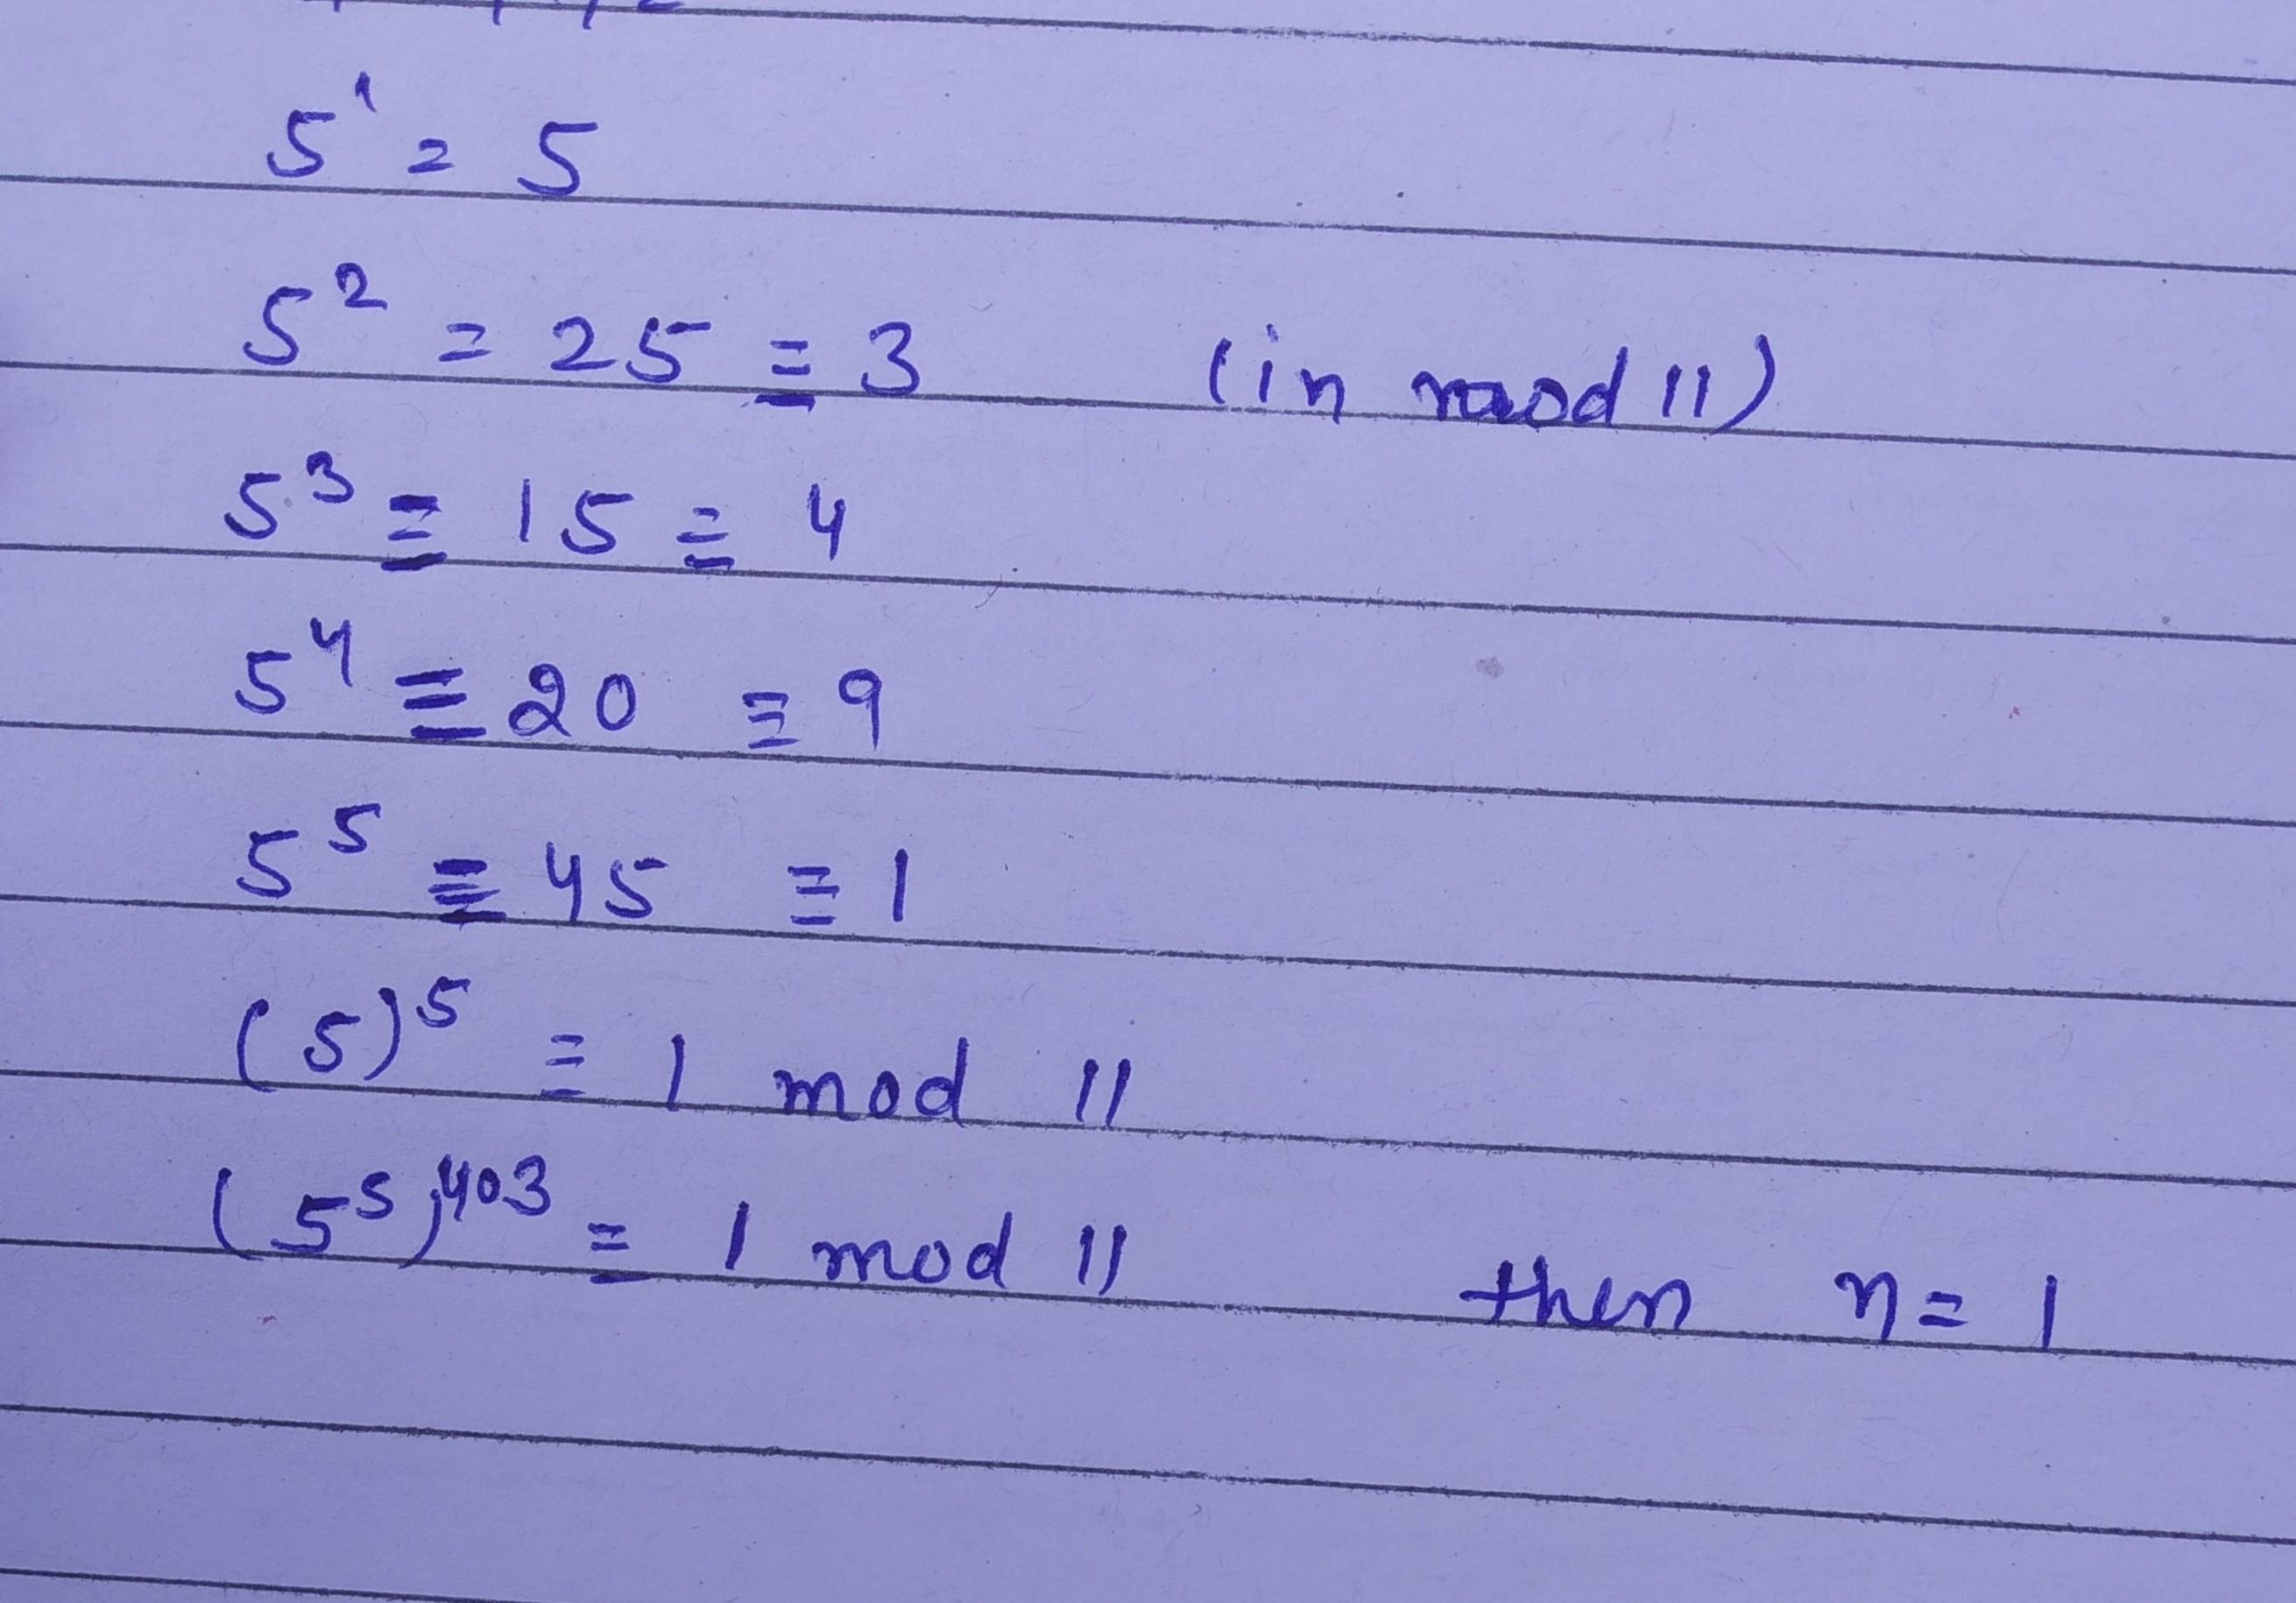 5¹ = 5
5² = 25 ≡ 3 (in mod 11)
5³ ≡ 15 ≡ 4
5⁴ ≡ 20 ≡ 9
5⁵ ≡ 45 ≡ 1
(5)⁵ ≡ 1 mod 11
(5⁵)⁴⁰³ ≡ 1 mod 11 then n = 1